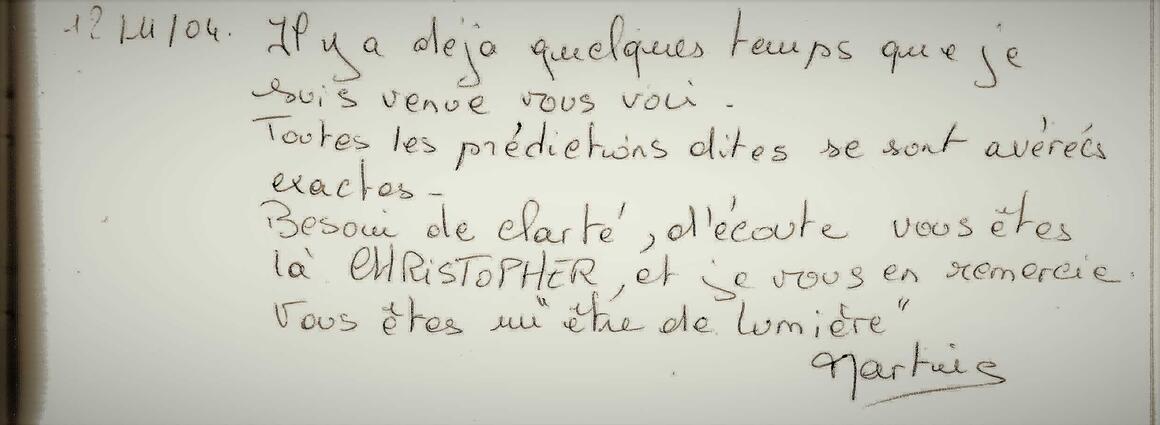 12/11/04. Il y a déjà quelques temps que je
suis venue vous voir.
Toutes les prédictions dites se sont avérées
exactes -
Besoin de clarté, d'écoute vous êtes
là CHRiSTOPHER, et je vous en remercie.
Vous êtes un "être de lumière"
Martine